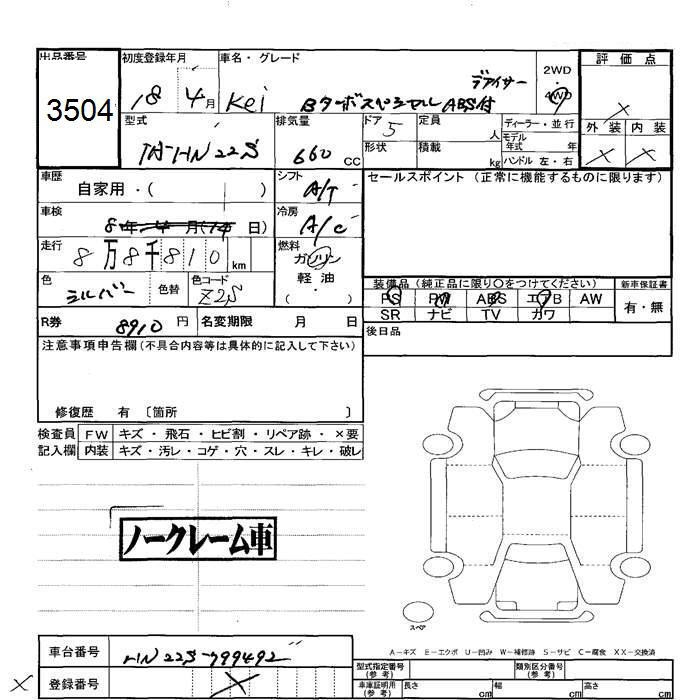 出品番号 初度登録年月 車名・グレード 2WD 評価点
3504 18 4月 Kei Bターボスペシャル ABS付 デアイサー 4WD ×
型式 排気量 ドア 定員 ディーラー・並行 外装 内装
TA-HN22S 660 CC 5 人 モデル年式 年 × ×
形状 積載 kg ハンドル 左・右
車歴 自家用・( ) シフト A/T セールスポイント (正常に機能するものに限ります)
車検 8年 4月(14日) 冷房 A/C
走行 8万8千810 km 燃料 ガソリン
軽油
・( )
色 シルバー 色替 色コード Z2S
装備品 (純正品に限り○をつけてください) 新車保証書
PS PW ABS エアB AW 有・無
SR ナビ TV カワ
R券 8910円 名変期限 月 日 後日品
注意事項申告欄(不具合内容等は具体的に記入して下さい)
修復歴 有 〔箇所 〕
検査員 FW キズ・飛石・ヒビ割・リペア跡・×要
記入欄 内装 キズ・汚レ・コゲ・穴・スレ・キレ・破レ
ノークレーム車
スペア
A-キズ E-エクボ U-凹み W-補修跡 S-サビ C-腐食 XX-交換済
車台番号 HN22S-799492 型式指定番号(参考) 類別区分番号(参考)
× 登録番号 × 車庫証明用(参考) 長さ cm 幅 cm 高さ cm